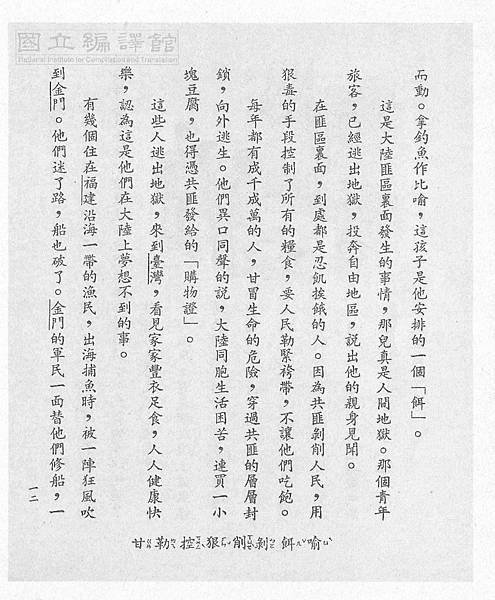 國立編譯館
National Institute for Compilation and Translation
而動。拿釣魚作比喻，這孩子是他安排的一個「餌」。
這是大陸匪區裏面發生的事情，那兒真是人間地獄。那個青年
旅客，已經逃出地獄，投奔自由地區，說出他的親身見聞。
在匪區裏面，到處都是忍飢挨餓的人。因為共匪剝削人民，用
狠毒的手段控制了所有的糧食，要人民勒緊褲帶，不讓他們吃飽。
每年都有成千成萬的人，甘冒生命的危險，穿過共匪的層層封
鎖，向外逃生。他們異口同聲的說，大陸同胞生活困苦，連買一小
塊豆腐，也得憑共匪發給的「購物證」。
這些人逃出地獄，來到臺灣，看見家家豐衣足食，人人健康快
樂，認為這是他們在大陸上夢想不到的事。
有幾個住在福建沿海一帶的漁民，出海捕魚時，被一陣狂風吹
到金門。他們迷了路，船也破了。金門的軍民一面替他們修船，一
一二
喻 餌 剝 削 狠 控 勒 甘